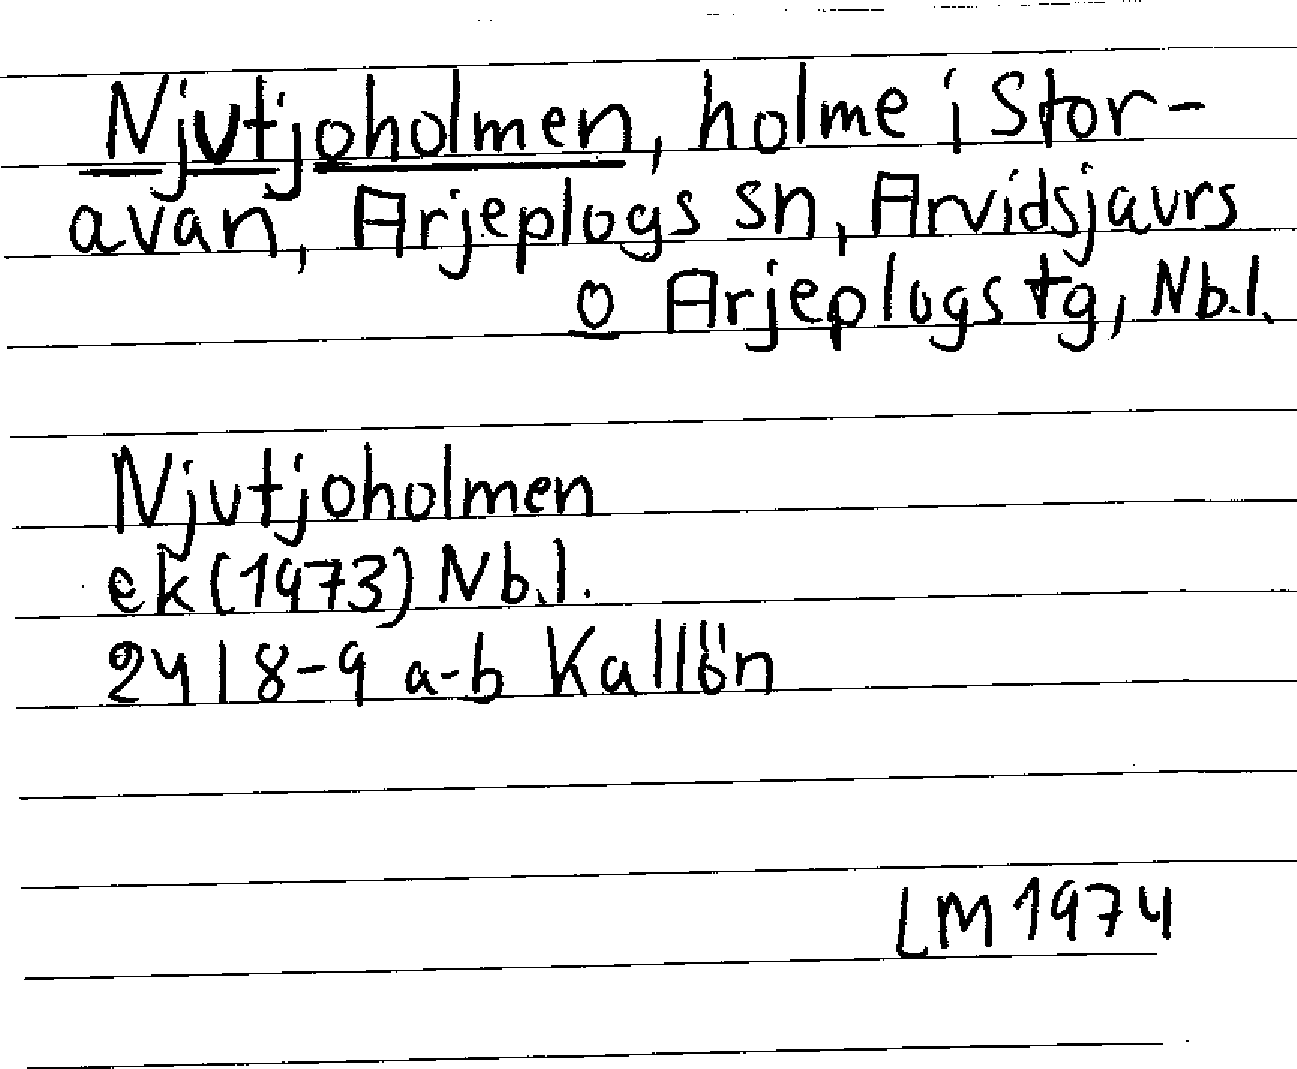 Njutjoholmen, holme i Stor-
avan, Arjeplogs sn, Arvidsjaurs
o Arjeplogs tg, Nb.l.
Njutjoholmen
ek (1973) Nb.l.
24 I 8-9 a-b Kallön
LM 1974